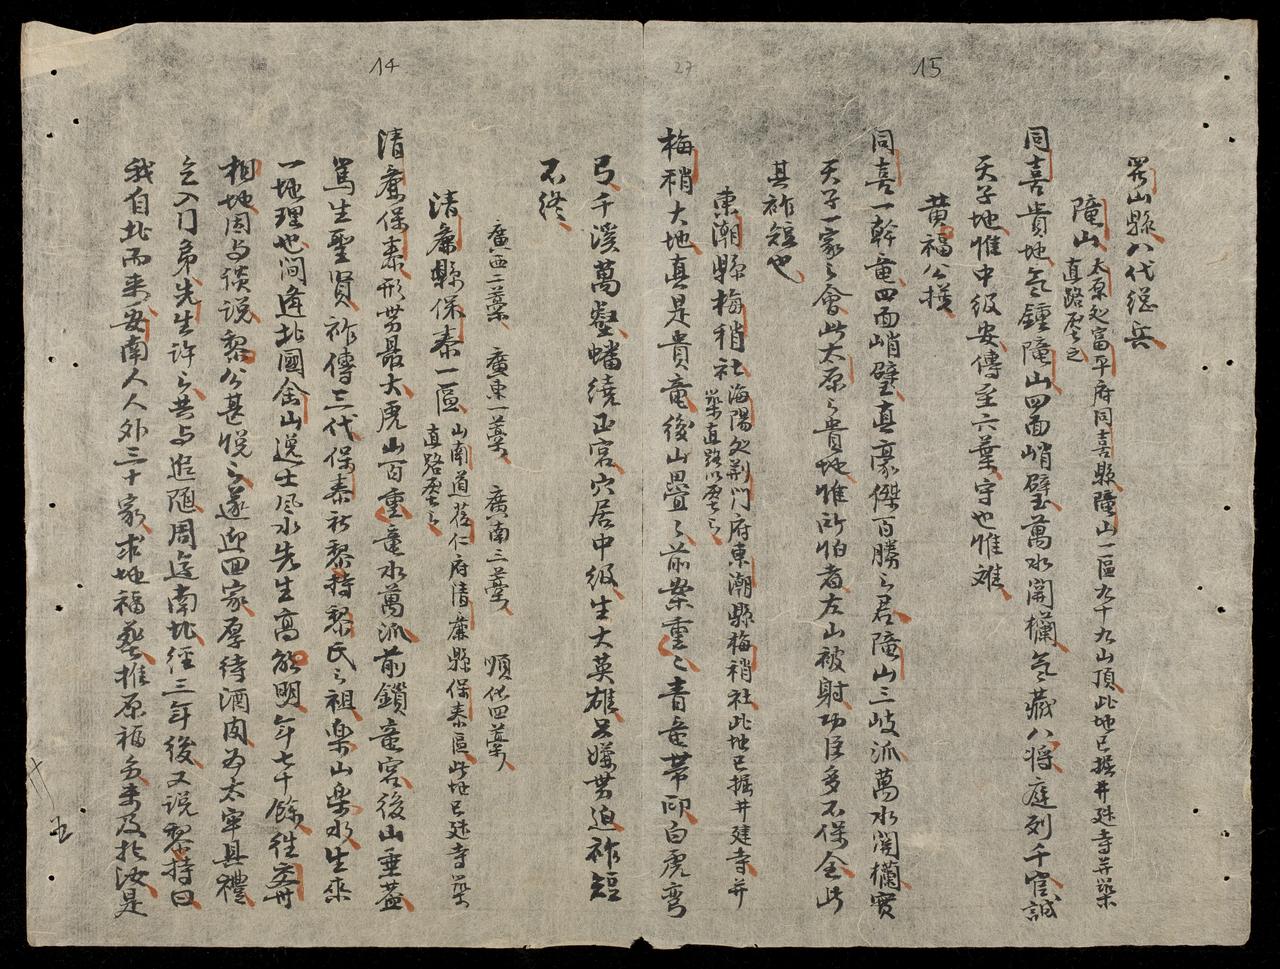 14
27
15
山縣八代總兵
隴山太原處富平府同喜縣隴山一區九千九山頂此地已掘井建寺并築
直路壓之
同喜貴地氣鍾隴山四面峭壁萬水開欄氣藏八將庭列千官誠
天子地惟中級安傳至六葉守也惟难
黄福公模
同喜一幹竜四面峭璧真豪傑百勝之君隴山三岐派萬水開欄實
天子一家之會此太原之貴地惟所怕者左山被射功臣多不保全此
其祚短也
東潮縣梅稍社海陽處荊門府東潮縣梅稍社此地已掘井建寺并
築直路以壓之
梅稍大地真是貴竜後山疊々前案重々青竜帶印白虎弯
弓千溪萬壑蟠繞正宮穴居中級生大英雄只嫌世迫祚短
不終
廣西二藁 廣東一藁 廣南三藁 順化四藁
清廉縣保泰一區山南道莅仁府清廉縣保泰區此地已建寺築
直路壓之
清廉保泰形勢最大虎山百重竜水萬派前鎖竜宮後山垂蓋
篤生聖賢祚傳三代保泰社黎持黎氏之祖樂山樂水生來
一地理也间逢北國金山逸士风水先生高能明年七千餘徃交州
相地因与談説黎公甚悦之遂迎回家厚待酒肉为太牢具禮
乞入门弟先生許之共与追隨周遊南北径三年後又説黎持曰
我自北而来安南人人外三十家求地福藝推原福分未及於汝是